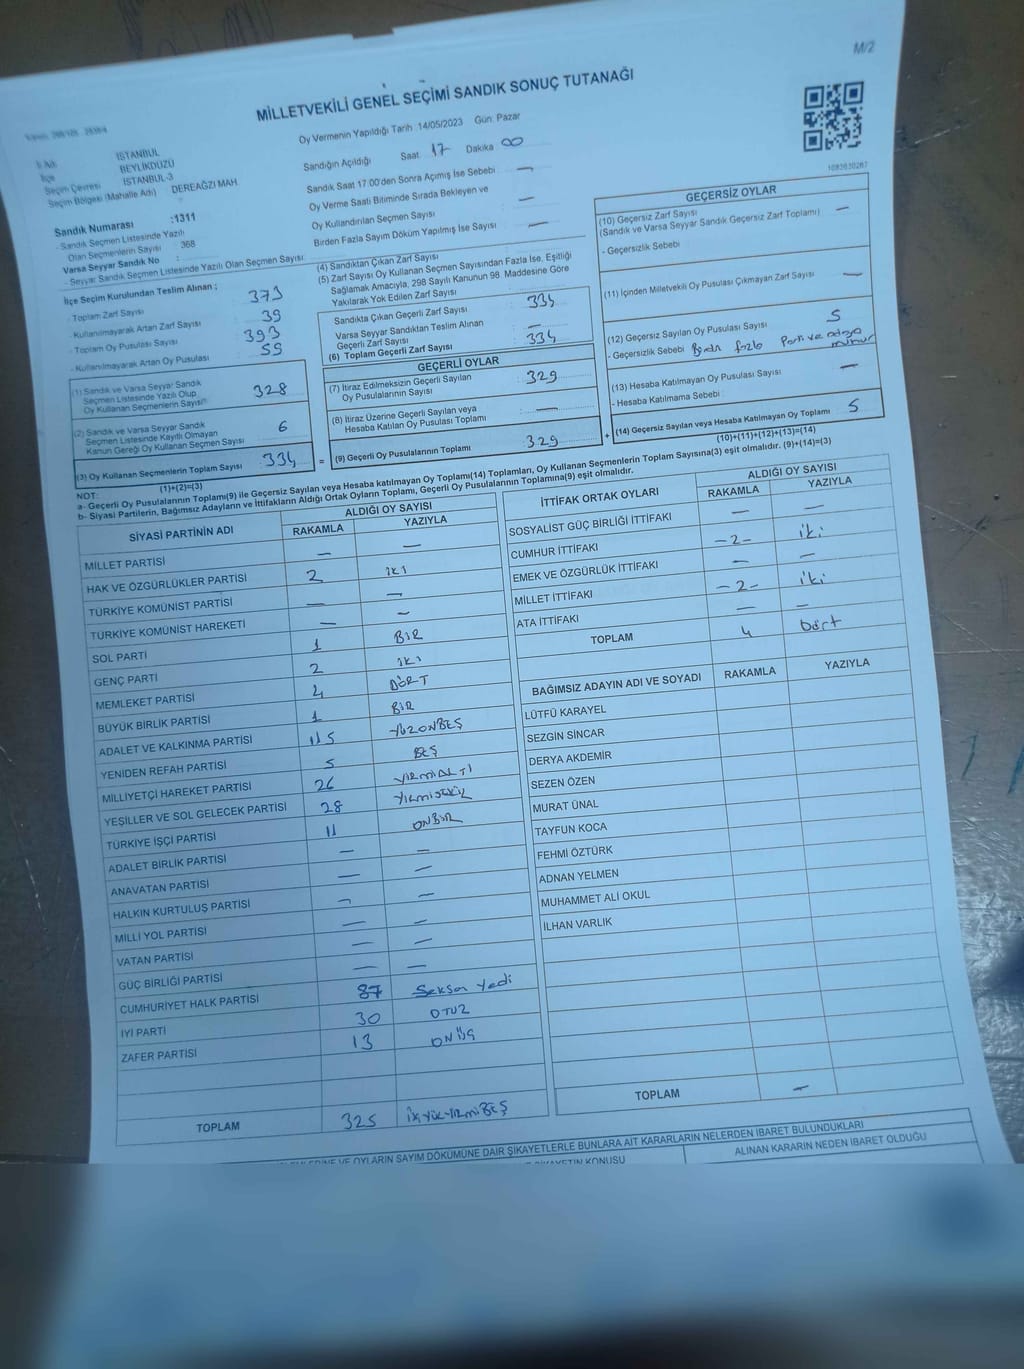 M/2
MİLLETVEKİLİ GENEL SEÇİMİ SANDIK SONUÇ TUTANAĞI
Oy Vermenin Yapıldığı Tarih :14/05/2023 Gün: Pazar
Sandığın Açıldığı Saat 17 Dakika 00
Sandık Saat 17:00'den Sonra Açımış İse Sebebi —
Oy Verme Saati Bitiminde Sırada Bekleyen ve
Oy Kullandırılan Seçmen Sayısı —
Birden Fazla Sayım Döküm Yapılmış İse Sayısı —
İSTANBUL
İlçe BEYLİKDÜZÜ
Seçim Çevresi İSTANBUL-3
Seçim Bölgesi (Mahalle Adı) DEREAĞZI MAH.
Sandık Numarası :1311
- Sandık Seçmen Listesinde Yazılı
Olan Seçmenlerin Sayısı : 368
Varsa Seyyar Sandık No :
- Seyyar Sandık Seçmen Listesinde Yazılı Olan Seçmen Sayısı :
İlçe Seçim Kurulundan Teslim Alınan ;
- Toplam Zarf Sayısı 373
- Kullanılmayarak Artan Zarf Sayısı 39
- Toplam Oy Pusulası Sayısı 393
- Kullanılmayarak Artan Oy Pusulası 59
(1) Sandık ve Varsa Seyyar Sandık
Seçmen Listesinde Yazılı Olup
Oy Kullanan Seçmenlerin Sayısı 328
(2) Sandık ve Varsa Seyyar Sandık
Seçmen Listesinde Kayıtlı Olmayan
Kanun Gereği Oy Kullanan Seçmen Sayısı 6
(3) Oy Kullanan Seçmenlerin Toplam Sayısı : 334
(1)+(2)=(3)
(4) Sandıktan Çıkan Zarf Sayısı
(5) Zarf Sayısı Oy Kullanan Seçmen Sayısından Fazla İse, Eşitliği
Sağlamak Amacıyla, 298 Sayılı Kanunun 98. Maddesine Göre
Yakılarak Yok Edilen Zarf Sayısı
Sandıkta Çıkan Geçerli Zarf Sayısı 334
Varsa Seyyar Sandıktan Teslim Alınan
Geçerli Zarf Sayısı —
(6) Toplam Geçerli Zarf Sayısı 334
GEÇERLİ OYLAR
(7) İtiraz Edilmeksizin Geçerli Sayılan
Oy Pusulalarının Sayısı 329
(8) İtiraz Üzerine Geçerli Sayılan veya
Hesaba Katılan Oy Pusulası Toplamı —
= (9) Geçerli Oy Pusulalarının Toplamı : 329 +
1083630267
GEÇERSİZ OYLAR
(10) Geçersiz Zarf Sayısı
(Sandık ve Varsa Seyyar Sandık Geçersiz Zarf Toplamı) —
- Geçersizlik Sebebi
(11) İçinden Milletvekili Oy Pusulası Çıkmayan Zarf Sayısı —
(12) Geçersiz Sayılan Oy Pusulası Sayısı 5
- Geçersizlik Sebebi Birden fazla Parti ve adaya mühür
(13) Hesaba Katılmayan Oy Pusulası Sayısı —
- Hesaba Katılmama Sebebi :
(14) Geçersiz Sayılan veya Hesaba Katılmayan Oy Toplamı 5
(10)+(11)+(12)+(13)=(14)
NOT:
a- Geçerli Oy Pusulalarının Toplamı(9) ile Geçersiz Sayılan veya Hesaba katılmayan Oy Toplamı(14) Toplamları, Oy Kullanan Seçmenlerin Toplam Sayısına(3) eşit olmalıdır. (9)+(14)=(3)
b- Siyasi Partilerin, Bağımsız Adayların ve İttifakların Aldığı Ortak Oyların Toplamı, Geçerli Oy Pusulalarının Toplamına(9) eşit olmalıdır.
SİYASİ PARTİNİN ADI ALDIĞI OY SAYISI
RAKAMLA YAZIYLA
MİLLET PARTİSİ — —
HAK VE ÖZGÜRLÜKLER PARTİSİ 2 İKİ
TÜRKİYE KOMÜNİST PARTİSİ — —
TÜRKİYE KOMÜNİST HAREKETİ — —
SOL PARTİ 1 BİR
GENÇ PARTİ 2 İKİ
MEMLEKET PARTİSİ 4 DÖRT
BÜYÜK BİRLİK PARTİSİ 1 BİR
ADALET VE KALKINMA PARTİSİ 115 YÜZONBEŞ
YENİDEN REFAH PARTİSİ 5 BEŞ
MİLLİYETÇİ HAREKET PARTİSİ 26 YİRMİALTI
YEŞİLLER VE SOL GELECEK PARTİSİ 28 YİRMİSEKİZ
TÜRKİYE İŞÇİ PARTİSİ 11 ONBİR
ADALET BİRLİK PARTİSİ — —
ANAVATAN PARTİSİ — —
HALKIN KURTULUŞ PARTİSİ — —
MİLLİ YOL PARTİSİ — —
VATAN PARTİSİ — —
GÜÇ BİRLİĞİ PARTİSİ — —
CUMHURİYET HALK PARTİSİ 87 Seksen Yedi
İYİ PARTİ 30 OTUZ
ZAFER PARTİSİ 13 ONÜÇ
TOPLAM 325
İTTİFAK ORTAK OYLARI ALDIĞI OY SAYISI
RAKAMLA YAZIYLA
SOSYALİST GÜÇ BİRLİĞİ İTTİFAKI — —
CUMHUR İTTİFAKI -2- iki
EMEK VE ÖZGÜRLÜK İTTİFAKI — —
MİLLET İTTİFAKI -2- iki
ATA İTTİFAKI — —
TOPLAM 4 Dört
BAĞIMSIZ ADAYIN ADI VE SOYADI RAKAMLA YAZIYLA
LÜTFÜ KARAYEL
SEZGİN SİNCAR
DERYA AKDEMİR
SEZEN ÖZEN
MURAT ÜNAL
TAYFUN KOCA
FEHMİ ÖZTÜRK
ADNAN YELMEN
MUHAMMET ALİ OKUL
İLHAN VARLIK
TOPLAM —
VE OYLARIN SAYIM DÖKÜMÜNE DAİR ŞİKAYETLERLE BUNLARA AİT KARARLARIN NELERDEN İBARET BULUNDUKLARI
KONUSU ALINAN KARARIN NEDEN İBARET OLDUĞU